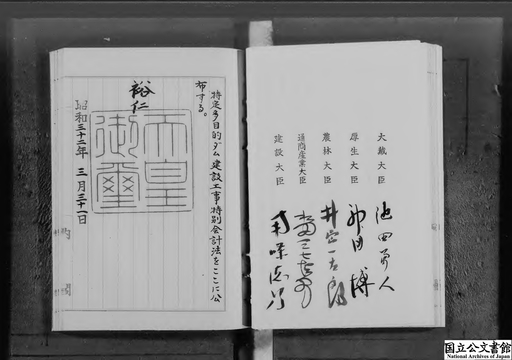 大蔵大臣 池田勇人
厚生大臣 神田博
農林大臣 井出一太郎
通商産業大臣 水田三喜男
建設大臣
特定多目的ダム建設工事特別会計法をここに公
布する。
裕仁
天皇
御璽
昭和三十二年三月三十一日
国立公文書館
National Archives of Japan